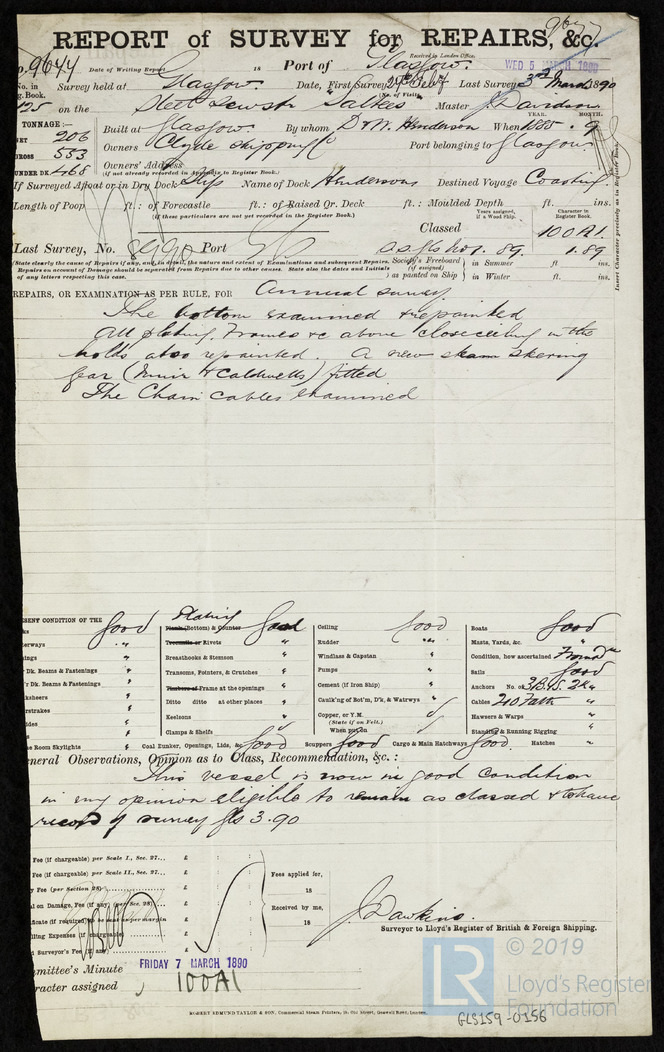 9677
REPORT of SURVEY for REPAIRS, &c.
Received in London Office,
No. 9644 Date of Writing Report 18 Port of Glasgow. WED 5 MARCH 1890
No. in Survey held at Glasgow. Date, First Survey 27th Feb Last Survey 3rd March 1890
g. Book. (No. of Visits)
125 on the Steel Sewstr Saltees Master J Davidson
TONNAGE:— YEAR. MONTH.
NET 206 Built at Glasgow. By whom D & W. Henderson When 1885 . 9
GROSS 553 Owners Clyde Shipping Co Port belonging to Glasgow
UNDER DK 468 Owners' Address
(if not already recorded in Appendix to Register Book.)
If Surveyed Afloat or in Dry Dock Slip Name of Dock Hendersons Destined Voyage Coasting.
Length of Poop ft.: of Forecastle ft.: of Raised Qr. Deck ft.: Moulded Depth ft. ins.
(if these particulars are not yet recorded in the Register Book.)
Years assigned, if a Wood Ship. Character in Register Book.
Classed 100A1.
Last Survey, No. Port 1.89
(State clearly the cause of Repairs if any, and, in detail, the nature and extent of Examinations and subsequent Repairs. Society's Freeboard in Summer ft ins.
Repairs on account of Damage should be separated from Repairs due to other causes. State also the dates and Initials (if assigned)
of any letters respecting this case. as painted on Ship in Winter ft. ins.
Insert Character precisely as in Register Book.
REPAIRS, OR EXAMINATION AS PER RULE, FOR Annual survey
The bottom examined & repainted
All plating, Frames &c above close ceiling in the
holds also repainted. A new steam steering
gear (Muir & Caldwells) fitted
The Chain cables examined
SENT CONDITION OF THE
Good Plating Plank (Bottom) & Counter Good Ceiling Good Boats Good
erways " Treenails or Rivets " Rudder " Masts, Yards, &c. "
ings " Breasthooks & Stemson " Windlass & Capstan " Condition, how ascertained From
r Dk. Beams & Fastenings " Transoms, Pointers, & Crutches " Pumps " Sails Good
r Dk. Beams & Fastenings " Timbers or Frame at the openings " Cement (if Iron Ship) " Anchors No. of 3B. 1S. 2K "
ksheers " Ditto ditto at other places " Caulk'ng of Bot'm, D'k, & Watrwys " Cables 240 Fath "
rstrakes " Keelsons " Copper, or Y.M. Hawsers & Warps "
(State if on Felt.)
ides " Clamps & Shelfs " When put on Standing & Running Rigging "
e Room Skylights " Coal Bunker, Openings, Lids, &c. Good Scuppers Good Cargo & Main Hatchways Good. Hatches "
eneral Observations, Opinion as to Class, Recommendation, &c.:
This vessel is now in good condition
in my opinion eligible to remain as classed & to have
record of survey Gls 3.90
Fee (if chargeable) per Scale I., Sec. 27... £ : :
Fee (if chargeable) per Scale II., Sec. 27... £ : : Fees applied for,
y Fee (per Section 28) £ : : 18
al on Damage, Fee (if any) (per Sec. 28) £ : : Received by me,
cate (if required) to be sent as per margin £ : : 18
lling Expenses (if chargeable) £ : :
t Surveyor's Fee (if any) £ : :
J. Dawkins.
Surveyor to Lloyd's Register of British & Foreign Shipping.
mmittee's Minute FRIDAY 7 MARCH 1890
aracter assigned 100A1
ROBERT EDMUND TAYLOR & SON, Commercial Steam Printers, 19, Old Street, Goswell Road, London.
LR © 2019
Lloyd's Register
Foundation
GLS159-0156